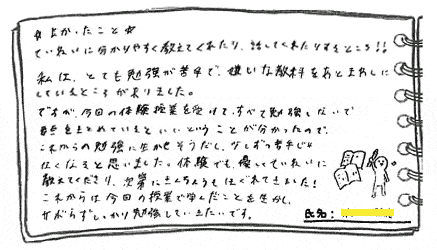 ☆よかったこと☆
ていねいに分かりやすく教えてくれたり、話してくれたりするところ!!
私は、とても勉強が苦手で、嫌いな教科をあとまわしに
しているところがありました。
ですが、今回の体験授業を受けて、すべて勉強しないで
要点をまとめているといいということが分かったので、
これからの勉強に生かせそうだし、少しずつ苦手じゃ
なくなると思いました。体験でも、優しくていねいに
教えてくださり、次第にきんちょうもほぐれてきました!
これからは今回の授業で学んだことを生かし、
がんばらずしっかり勉強していきたいです。
氏名: